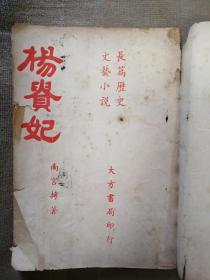 長篇歷史
文藝小説
楊貴妃
南宮搏著
大方書局印行